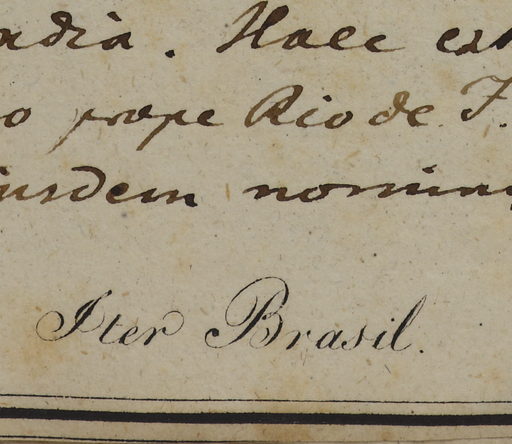 adia. Haec est
o prope Rio de J.
iusdem nomin
Iter Brasil.